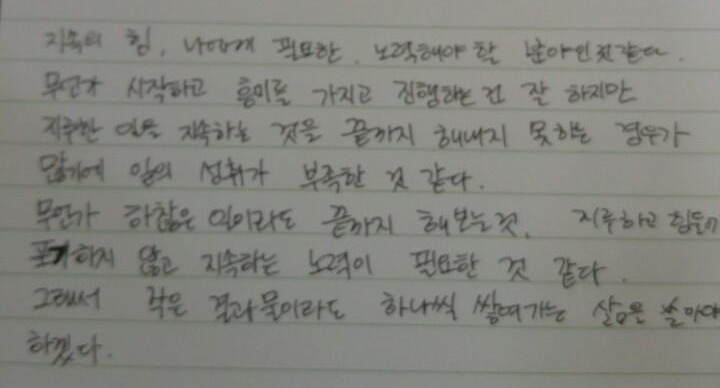 지속의 힘, 나에게 필요한, 노력해야 할 분야인 것 같다.
무언가 시작하고 흥미를 가지고 진행하는 건 잘 하지만
지루한 일을 지속하는 것을 끝까지 해내지 못하는 경우가
많기에 일의 성취가 부족한 것 같다.
무언가 하찮은 일이라도 끝까지 해보는 것. 지루하고 힘들어
포기하지 않고 지속하는 노력이 필요한 것 같다.
그래서 작은 결과물이라도 하나씩 쌓여가는 삶을 살아야
하겠다.